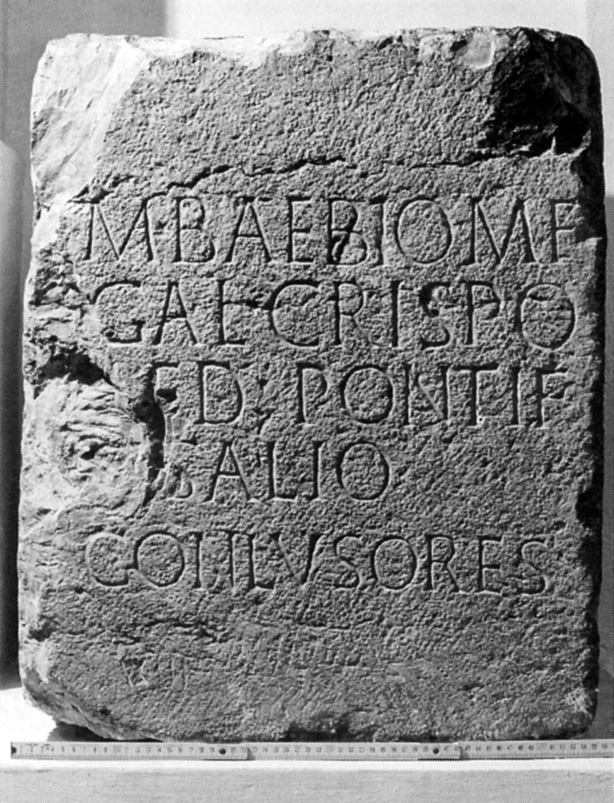 M BAEBIO M F
GAL CRISPO
ED PONTIF
SALIO
CONLVSORES